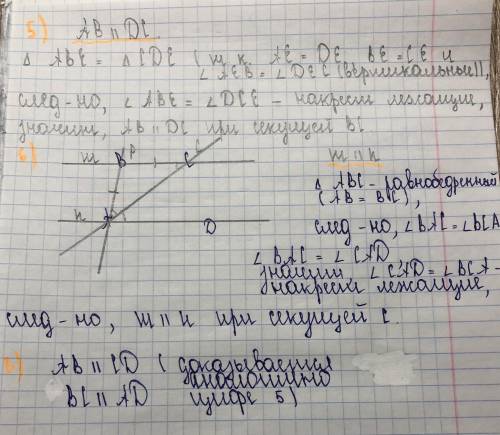 5) AB || DC
Δ ABE = Δ CDE ( т.к. AE = DE, BE = CE и
∠ AEB = ∠ DEC (вертикальные)),
след-но, ∠ ABE = ∠ DCE – накрест лежащие,
значит, AB || DC при секущей BC.
6) m B P C c m || n
n A D
Δ ABC – равнобедренный
(AB = BC),
след-но, ∠BAC = ∠BCA
∠ BAC = ∠ CAD
значит, ∠ CAD = ∠BCA –
накрест лежащие,
след-но, m || n при секущей c.
8) AB || CD ( доказывается
аналогично
BC || AD цифре 5)